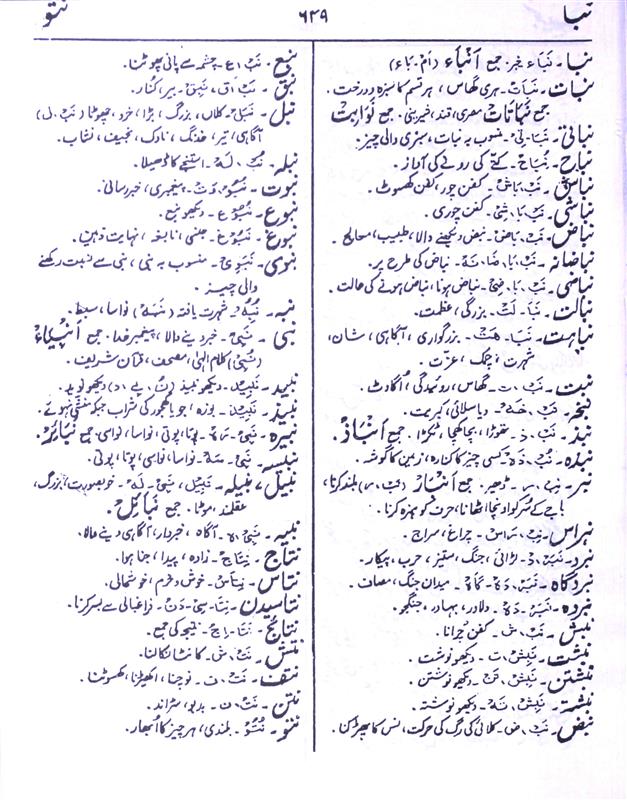 نبا
۶۴۹
نتو
نبا۔ نَبَاء۔ خبر۔ جمع اَنْبَاء (اَم۔ بَاء)
نبات۔ نَبَاتْ۔ ہری گھاس، ہر قسم کا سبزہ و درخت۔
جمع نَبَاتَات مصری، قند، شیرینی۔ جمع نَوَابِت
نباتی۔ نَبَا۔ تِی۔ منسوب بہ نبات، سبزی والی چیز۔
نباح۔ نُبَاحْ۔ کتے کی رونے کی آواز۔
نباش۔ نَبْ۔ بَاشْ۔ کفن چور، کفن کھسوٹ۔
نباشی۔ نَبْ۔ بَا۔ شِیْ۔ کفن چوری۔
نباض۔ نَبْ۔ بَاضْ۔ نبض دیکھنے والا، طبیب، معالج۔
نباضانہ۔ نَبْ۔ بَا۔ ضَا۔ نَہْ۔ نباض کی طرح پر۔
نباضی۔ نَبْ۔ بَا۔ ضِیْ۔ نباض ہونا، نباض ہونے کی حالت۔
نبالت۔ نَبَا۔ لَتْ۔ بزرگی، عظمت۔
نباہت۔ نَبَا۔ ہَتْ۔ بزرگواری، آگاہی، شان،
شہرت، چمک، عزت۔
نبت۔ نَبْ۔ ت۔ گھاس، روئیدگی، اُگاوٹ۔
نبخہ۔ نَبْ۔ خَہْ۔ دیا سلائی، کبریت۔
نبذ۔ نَبْ۔ ذ۔ تھوڑا، بچا کھچا، ٹکڑا۔ جمع اَنْبَاذ۔
نبذہ۔ نُبْ۔ ذَہْ۔ کسی چیز کا کنارہ، زمین کا گوشہ۔
نبر۔ نِبْ۔ ر۔ ڈھیر۔ جمع اَنْبَار (نَبْ۔ ر) بلند کرنا،
گانے کے سُر کو اونچا اٹھانا، حرف کو ہمزہ کرنا۔
نبراس۔ نِبْ۔ رَاسْ۔ چراغ، سراج۔
نبرد۔ نَبَرْ۔ دْ۔ لڑائی، جنگ، ستیز، حرب، پیکار۔
نبردگاہ۔ نَبَرْ۔ دْ۔ گَاہْ۔ میدان جنگ، مصاف۔
نبردہ۔ نَبَرْ۔ دَہْ۔ دلاور، بہادر، جنگجو۔
نبش۔ نَبْ۔ ش۔ کفن چرانا۔
نبشت۔ نَبِشْ۔ ت۔ دیکھو نوشت۔
نبشتن۔ نَبِشْ۔ تَنْ۔ دیکھو نوشتن۔
نبشتہ۔ نَبِشْ۔ تَہْ۔ دیکھو نوشتہ۔
نبض۔ نَبْ۔ ض۔ کلائی کی رگ کی حرکت، نس کا پھڑکنا۔
نبع۔ نَبْ۔ ع۔ چشمہ سے پانی پھوٹنا۔
نبق۔ نَبْ۔ ق، نَبِقْ۔ بیر، کنار۔
نبل۔ نَبَلْ۔ کلاں، بزرگ، بڑا، خرد، چھوٹا (نَبْ۔ ل)
آگاہی، تیر، خدنگ، ناوک، نحیف، نشاب۔
نبلہ۔ نُبْ۔ لَہْ۔ استنجے کا ڈھیلا۔
نبوت۔ نَبُوْ۔ وَتْ۔ پیغمبری، خبر رسانی۔
نبوع۔ نُبُوْ۔ ع۔ دیکھو نبع۔
نبوغ۔ نُبُوْ۔ غ۔ نابغہ، نہایت ذہین۔
نبوی۔ نَبَوِیْ۔ منسوب بہ نبی، نبی سے نسبت رکھنے
والی چیز۔
نبہ۔ نَبُہْ۔ شہرت یافتہ نواسا، سبط۔
نبی۔ نَبِیْ۔ خبر دینے والا، پیغمبر خدا۔ جمع اَنْبِیَاء
(نُبِیْ) کلام الہٰی، مصحف، قرآن شریف۔
نبید۔ نَبِیْد۔ دیکھو نبیذ دیکھو نوید۔
نبیذ۔ نَبِیْذ۔ بوزہ، جو یا کھجور کی شراب
نبیرہ۔ نَبِیْ۔ رَہ۔ پوتا، پوتی، نواسا، نواسی۔ جمع نَبَائِر۔
نبیسہ۔ نَبِیْ۔ سَہْ۔ نواسا، نواسی، پوتا، پوتی۔
نبیل، نبیلہ۔ نَبِیْل، نَبِیْ۔ لَہْ۔ خوبصورت، بزرگ،
عقلمند، موٹا۔ جمع نَبَائِل۔
نبیہ۔ نَبِیْ۔ ہ۔ آگاہ، خبردار، آگاہی دینے والا۔
نتاج۔ نِتَاج۔ زادہ، پیدا، جنا ہوا۔
نتاس۔ نِتَاسْ۔ خوش و خرم، خوشحالی۔
نتاسیدن۔ نِتَا۔ سِیْ۔ دَنْ۔ فراغبالی سے بسر کرنا۔
نتائج۔ نَتَا۔ ئِج۔ نتیجہ کی جمع۔
نتش۔ نَتْ۔ ش۔ کانٹا نکالنا۔
نتف۔ نَتْ۔ ف۔ نوچنا، اکھیڑنا، کھسوٹنا۔
نتن۔ نَتْ۔ ن۔ بدبو، سڑاند۔
نتو۔ نُتُوْ۔ بلندی، ہر چیز کا اُبھار۔